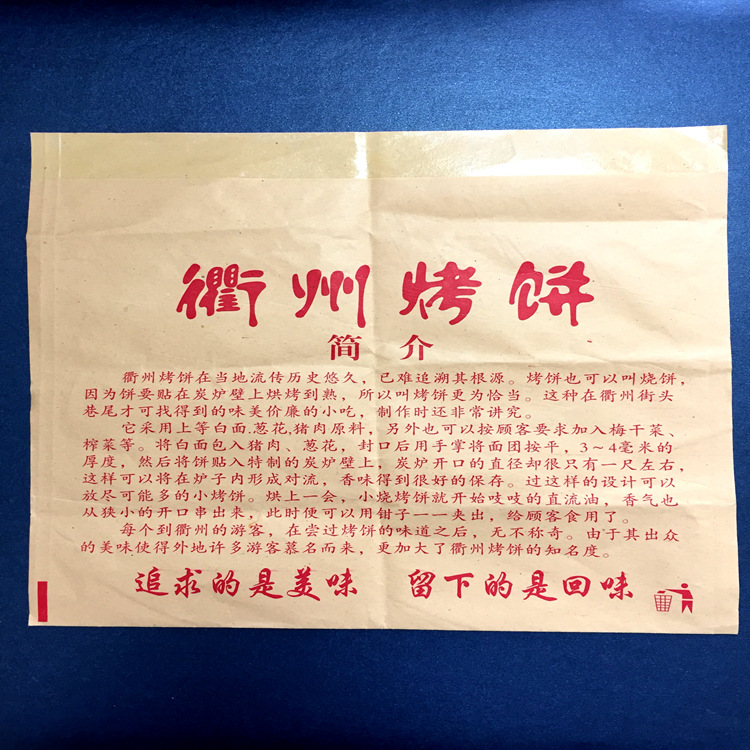 衢州烤饼
简介
衢州烤饼在当地流传历史悠久，已难追溯其根源。烤饼也可以叫烧饼，
因为饼要贴在炭炉壁上烘烤到熟，所以叫烤饼更为恰当。这种在衢州街头
巷尾才可找得到的味美价廉的小吃，制作时还非常讲究。
它采用上等白面,葱花,猪肉原料，另外也可以按顾客要求加入梅干菜、
榨菜等。将白面包入猪肉、葱花，封口后用手掌将面团按平，3～4毫米的
厚度，然后将饼贴入特制的炭炉壁上，炭炉开口的直径却很只有一尺左右，
这样可以将在炉子内形成对流，香味得到很好的保存。过这样的设计可以
放尽可能多的小烤饼。烘上一会，小烧烤饼就开始吱吱的直流油，香气也
从狭小的开口串出来，此时便可以用钳子一一夹出，给顾客食用了。
每个到衢州的游客，在尝过烤饼的味道之后，无不称奇。由于其出众
的美味使得外地许多游客慕名而来，更加大了衢州烤饼的知名度。
追求的是美味 留下的是回味